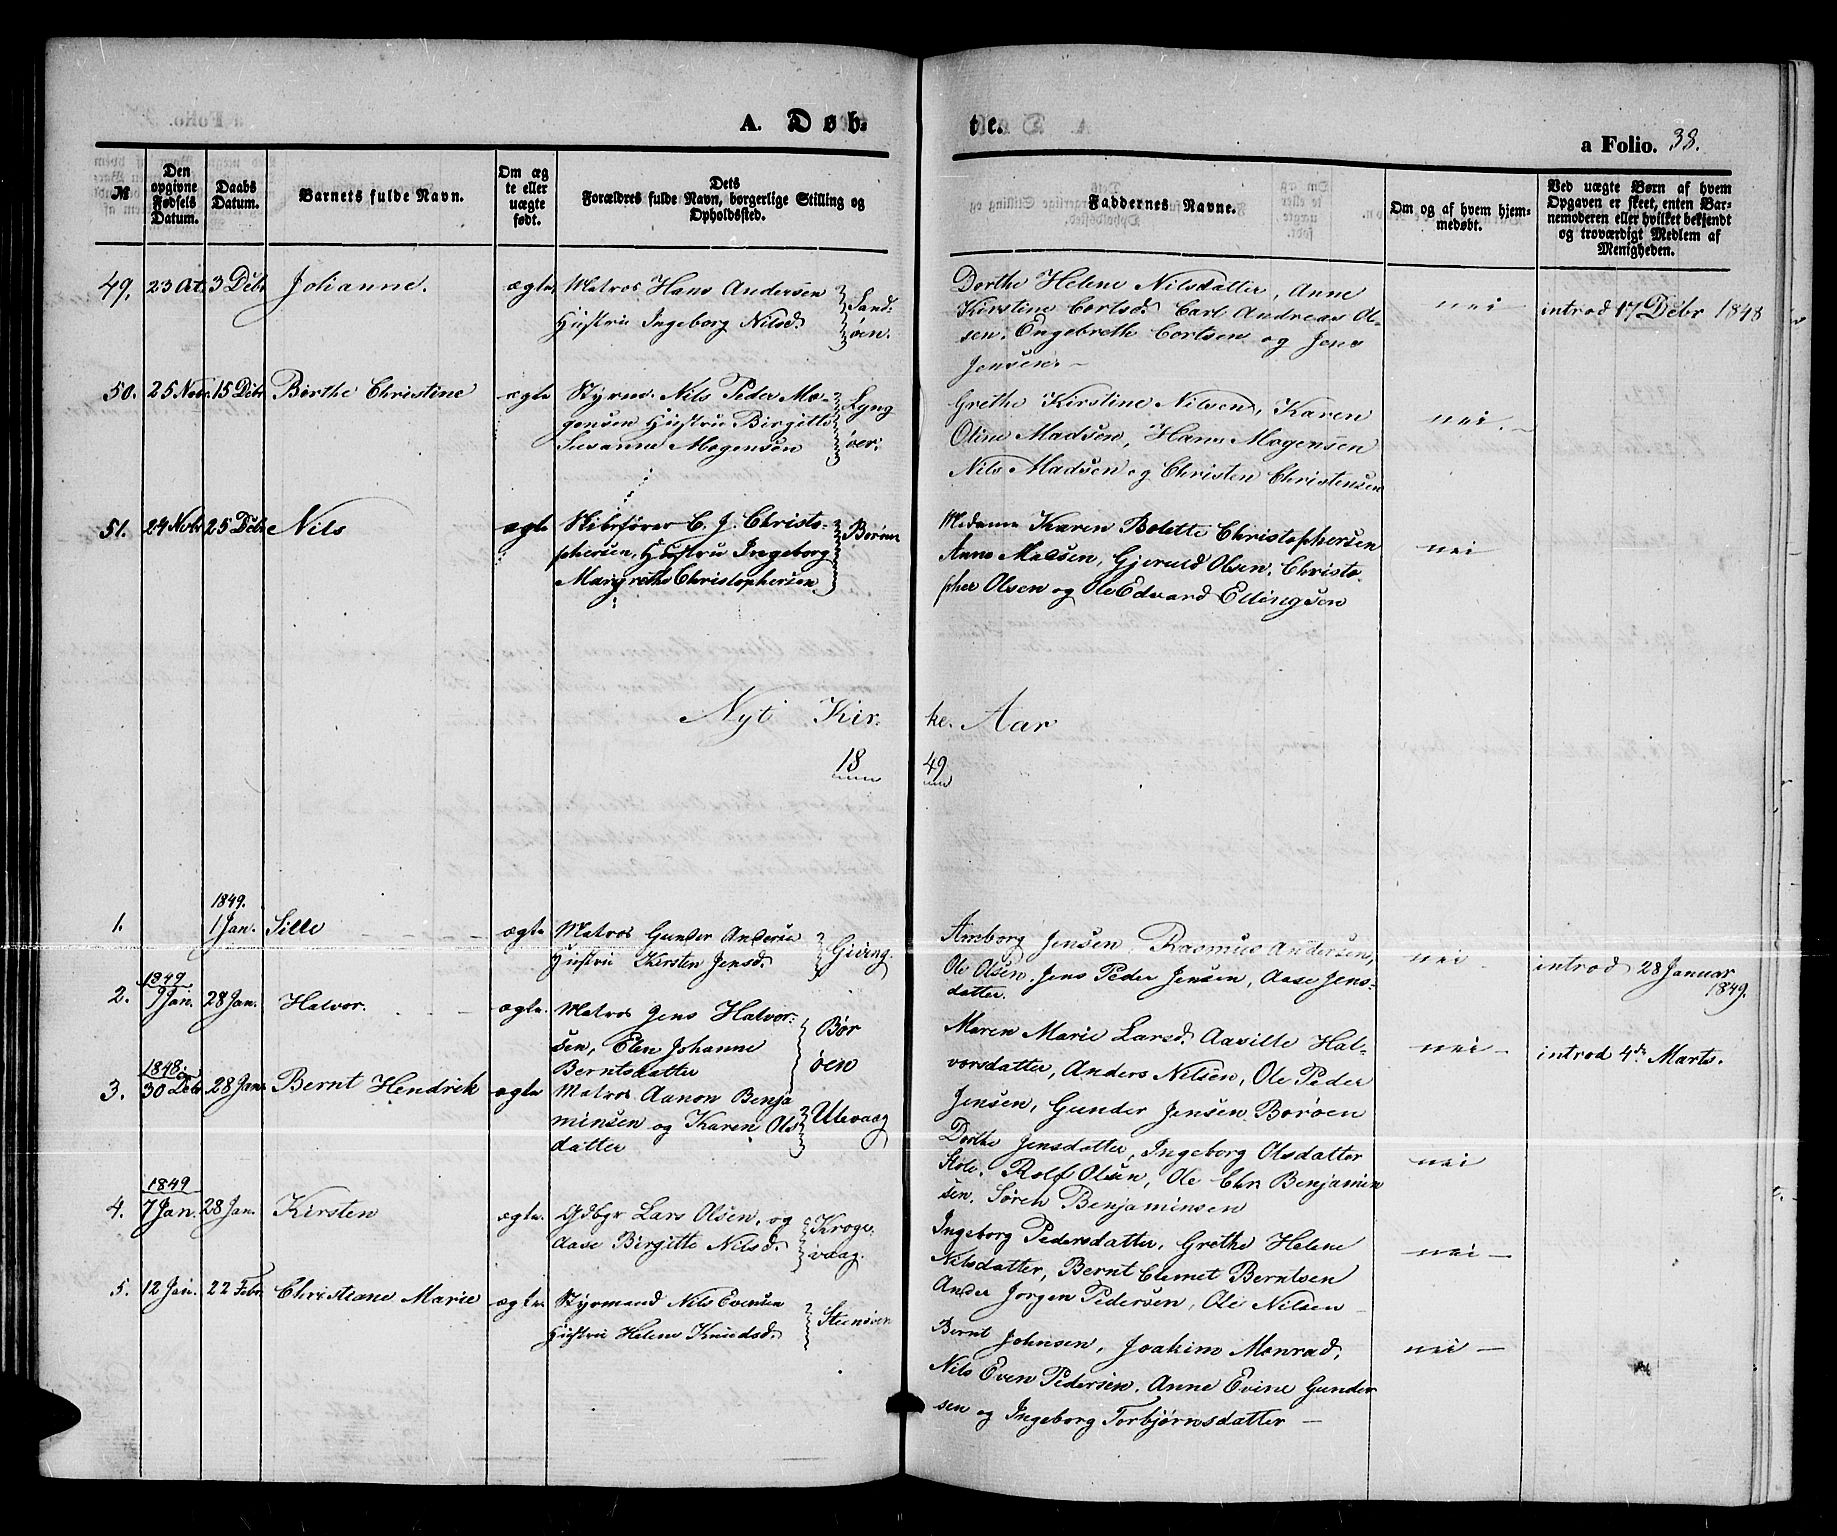 A. Døb-
te.
a Folio. 38.
№
Den opgivne Fødsels Datum.
Daabs Datum.
Barnets fulde Navn.
Om æg te eller uægte født.
Dets
Forældres fulde Navn, borgerlige Stilling og Opholdssted.
Faddernes Navne.
Om og af hvem hjem-
medøbt.
Ved uægte Børn af hvem
Opgaven er skeet, enten Bar-
nemoderen eller hvilket bekjendt
og troværdigt Medlem af
Menigheden.
49. 23 Oct. 3 Debr Johanne. ægte Matros Hans Andersen
Hustru Ingeborg Nilsd.
Sand-
øen.
Dorthe Helene Nilsdatter, Anne
Kirstine Cortsd. Carl Andreas Ol-
sen, Engebreth Cortsen og Jens
Jensen. –
nei
introd 17 Debr 1848
50. 25 Nobr. 15 Debr Berthe Christine ægte Styrm. Nils Peder Mo-
gensen Hustru Birgitte
Susanne Mogensen
Lyng
øer.
Grethe Kirstine Nilsen, Karen
Oline Madsen, Hans Mogensen
Nils Madsen og Christen Christensen
nei. –
51. 24 Nobr 25 Debr Nils ægte Skibsfører C. J. Christo-
phersen, Hustru Ingeborg
Margrethe Christophersen
Borøen
Madame Karen Bolette Christophersen
Anne Madsen, Gjeruld Olsen, Christo-
pher Olsen og Ole Edvard Ellingsen
nei
Nyt Kir-
ke Aar
18
49
1. 1849. 1 Jan. Sille ægte Matros Gunder Anders
Hustru Kirsten Jensd.
Giving.
Amborg Jensen Rasmus Andersen,
Ole Olsen, Jens Peder Jensen, Aase Jens-
datter.
nei
introd 28 Januar
1849.
2. 1849 9 Jan. 28 Jan. Halvor. ægte. Matros Jens Halvor-
sen, Elen Johanne
Berntsdatter
Bor
øen
Maren Marie Larsd. Aaville Hal-
vorsdatter, Anders Nilsen, Ole Peder
Jensen, Gunder Jensen Borøen
nei –
introd 4de Marts.
3. 1848. 30 Debr 28 Jan. Bernt Hendrik ægte Matros Aanon Benja
minsen og Karen Ols
datter
Ulevaag
Dorthe Jensdatter, Ingeborg Olsdatter
Stole. Rolf Olsen, Ole Chr. Benjamin
sen. Søren Benjaminsen
nei
4. 1849 7 Jan. 28 Jan. Kirsten ægte. Gdbgr Lars Olsen, og
Aase Birgitte Nilsd.
Kroge-
vaag.
Ingeborg Pedersdatter, Grethe Helene
Nilsdatter, Bernt Clemet Berntsen
Ander Jørgen Pedersen, Ole Nilsen
nei –
5. 12 Jan. 22 Febr. Christiane Marie ægte. Styrmand Nils Evensen
Hustru Helene Knudsd.
Steensøen
Bernt Johnsen, Joakim Monrad,
Nils Even Pedersen, Anne Evine Gunder
sen og Ingeborg Torbjørnsdatter –
nei –